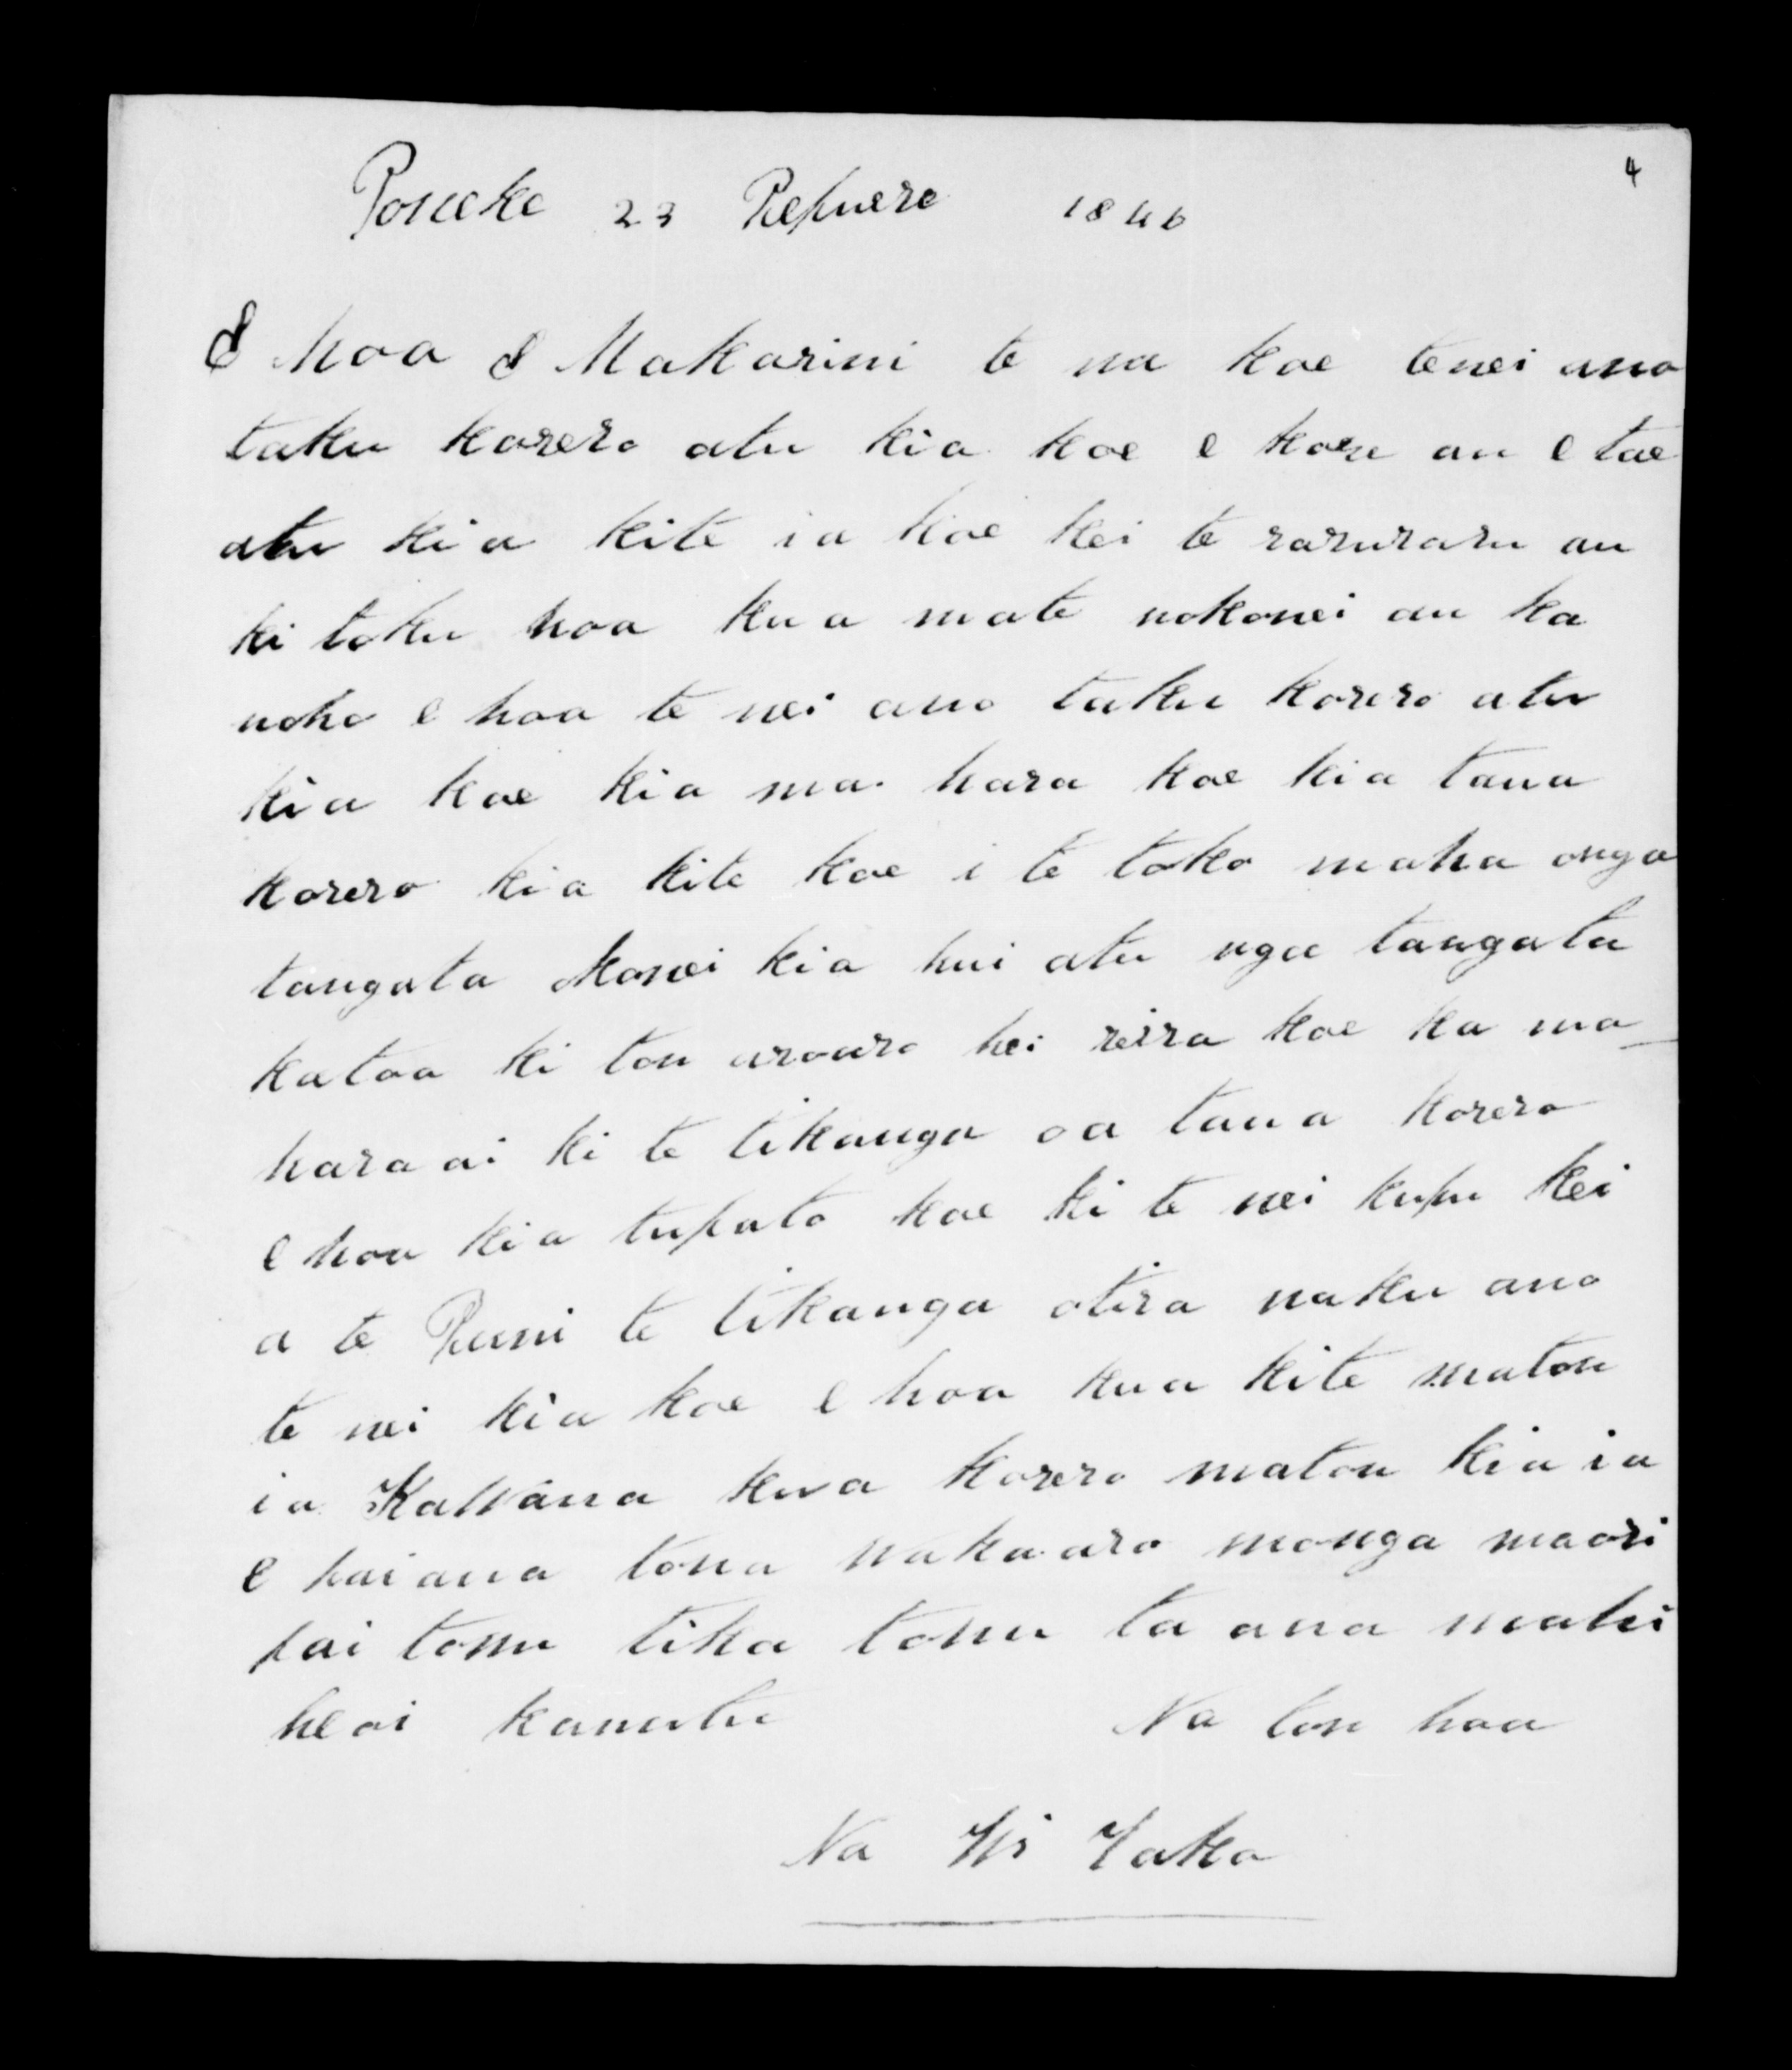 4
Poneke 23 Pepuere 1846
E hoa E Makarini te na koe tenei ano
taku korero atu kia koe e kore au e tae
atu kia kite ia koe kei te raruraru au
ki toku hoa kua mate nokonei au ka
noho e hoa te nei ano taku korero atu
kia koe kia ma hara koe kia taua
korero kia kite koe i te toko maha onga
tangata okonei kia hui atu nga tangata
katoa ki tou aroaro hei reira koe ka ma-
hara ai ki te tikanga oa taua korero
e hoa kia tupato koe ki te nei kupu kei
a te Puni te tikanga otira naku ano
te nei kia koe e hoa kua kite matou
ia Kawana kua korero matou kia ia
e pai ana tona wakaaro monga maori
pai tonu tika tonu ta ana mahi
heoi kanutu Na tou hoa
Na Wi Tako